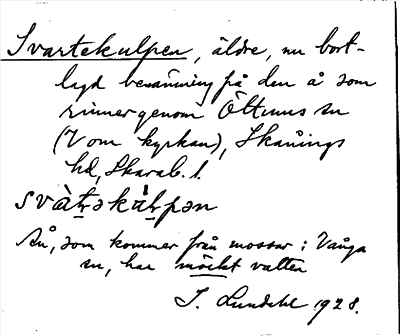 Svartekulpen, äldre, nu bort-
lagd benämning på den å som
rinner genom Öttums sn
(V om kyrkan), Skånings
hd, Skarab. l.
svàt̲əkùl̲pən
Ån, som kommer från mossar i Vånga
sn, har mörkt vatten
I. Lundahl 1928.